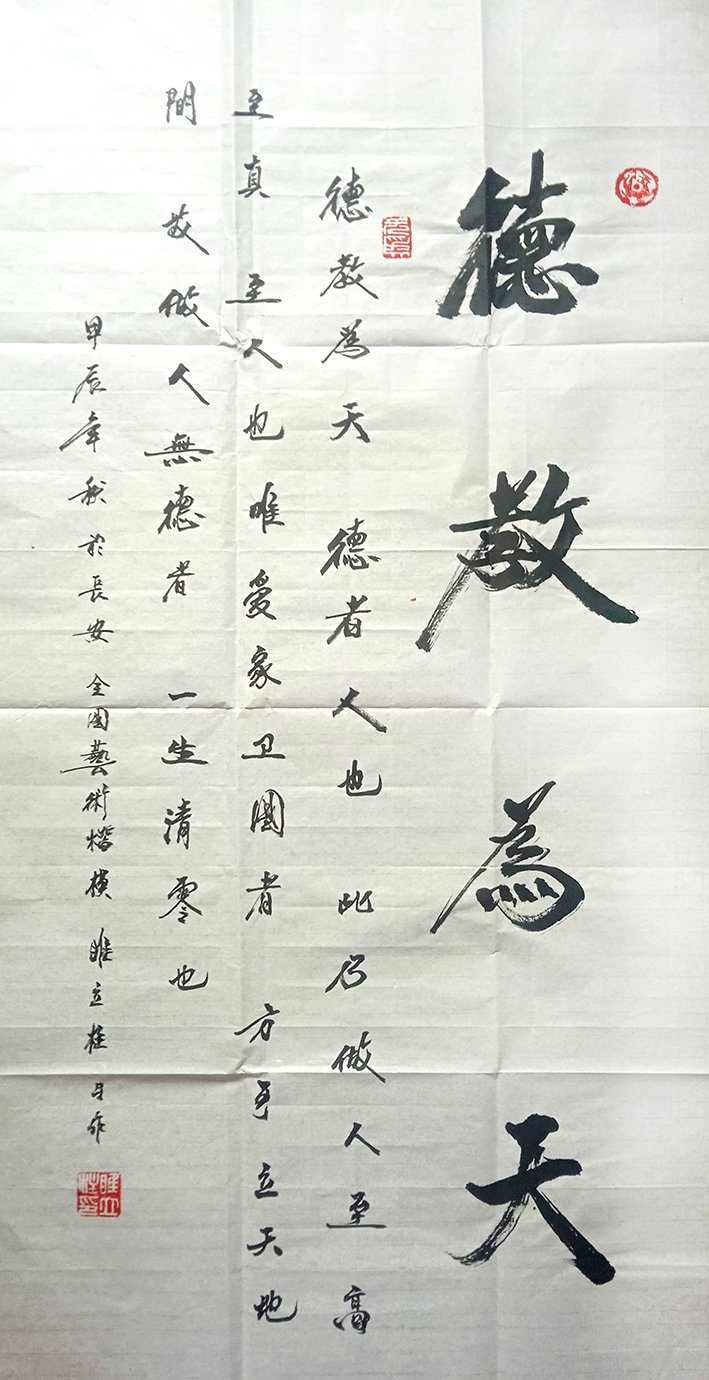 德教為天
德教為天 德者人也 此乃做人至高
至真 至人也 唯愛家卫國者 方可立天地
間 故做人無德者 一生清零也
甲辰年秋於長安 全国藝術楷模 睢立柱 作
睢立柱印